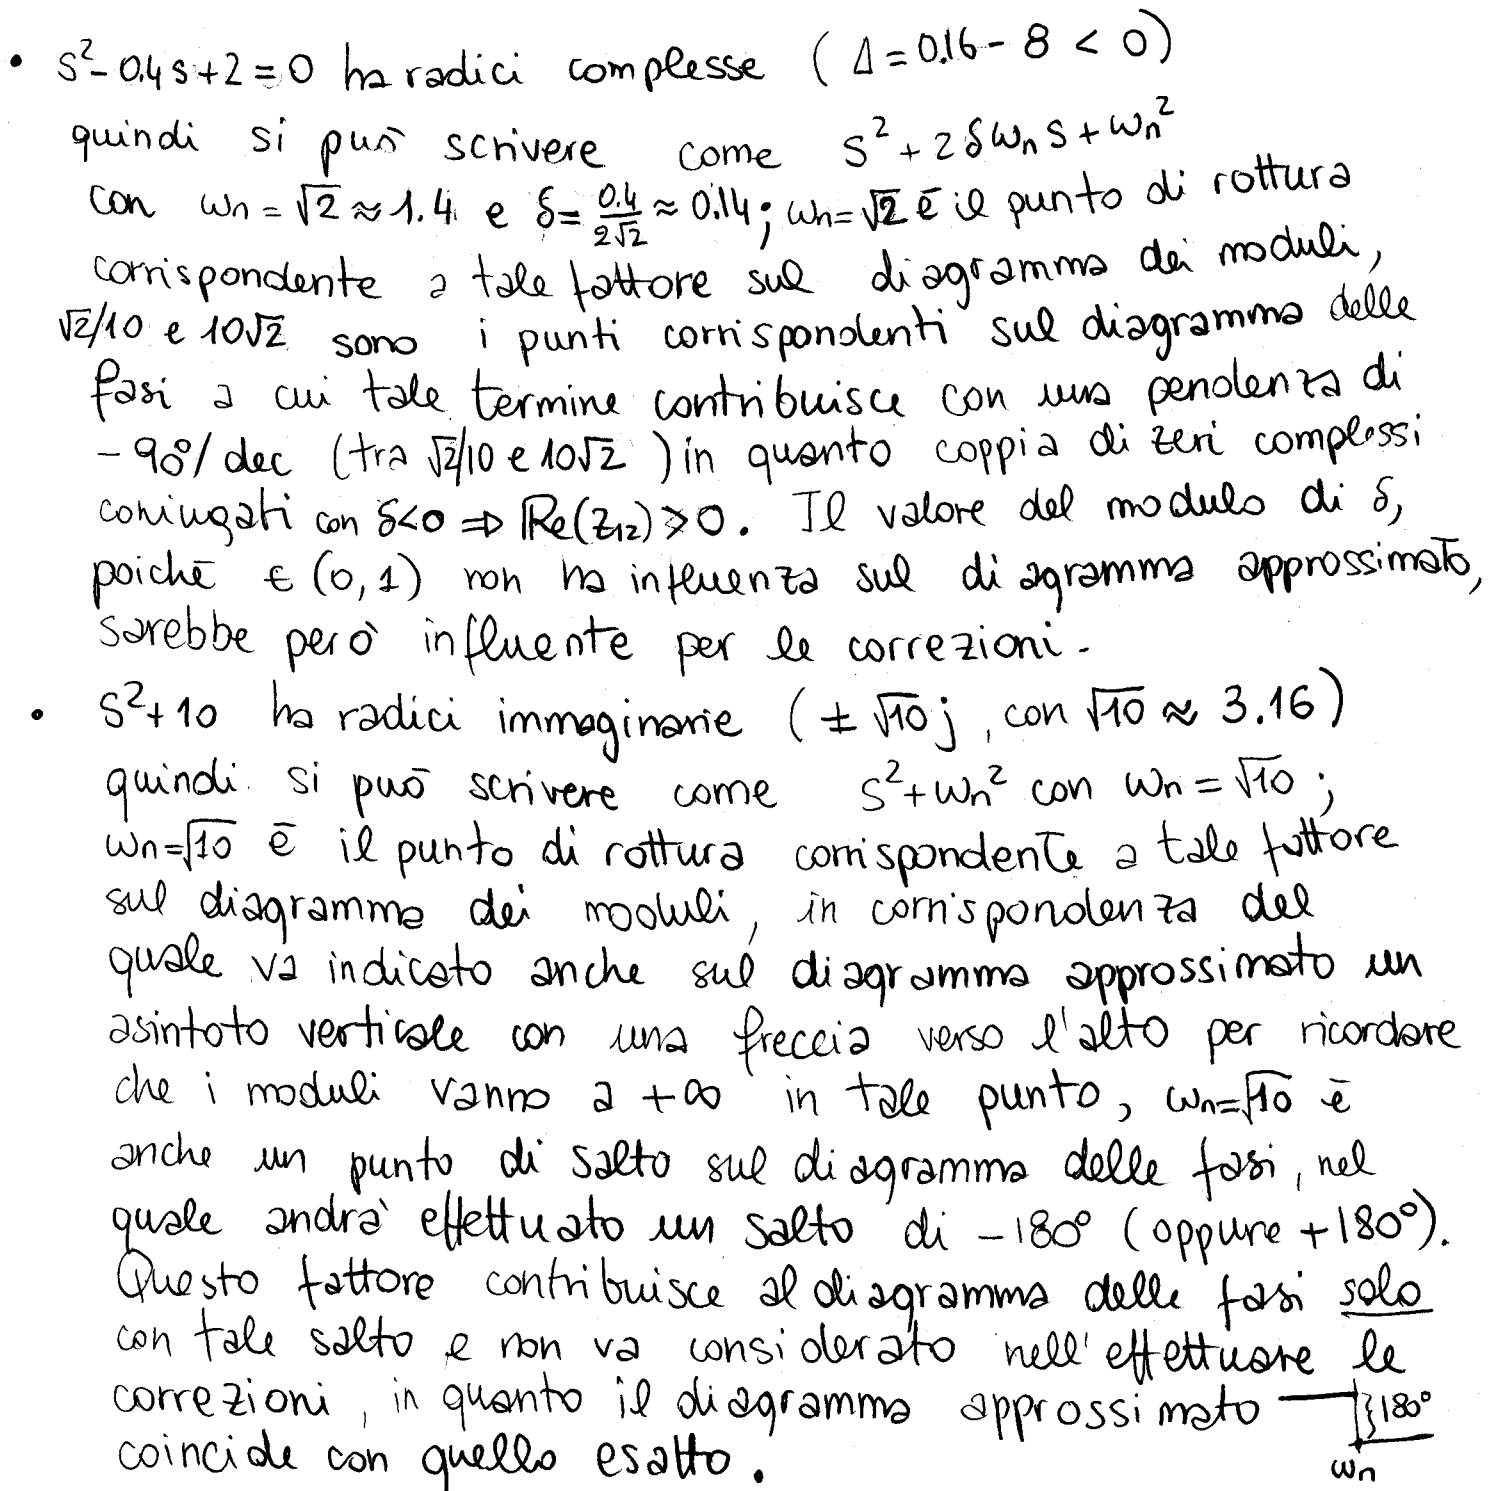 • s²-0.4s+2=0 ha radici complesse (Δ=0.16-8<0)
quindi si può scrivere come s²+2δωn s+ωn²
con ωn=√2≈1.4 e δ=0.4/2√2≈0.14; ωn=√2 è il punto di rottura
corrispondente a tale fattore sul diagramma dei moduli,
√2/10 e 10√2 sono i punti corrispondenti sul diagramma delle
fasi a cui tale termine contribuisce con una pendenza di
-90°/dec (tra √2/10 e 10√2) in quanto coppia di zeri complessi
coniugati con δ<0 ⇒ Re(z12)>0. Il valore del modulo di δ,
poichè ∈(0,1) non ha influenza sul diagramma approssimato,
sarebbe però influente per le correzioni.
• s²+10 ha radici immaginarie (±√10 j, con √10≈3.16)
quindi si può scrivere come s²+ωn² con ωn=√10;
ωn=√10 è il punto di rottura corrispondente a tale fattore
sul diagramma dei moduli, in corrispondenza del
quale va indicato anche sul diagramma approssimato un
asintoto verticale con una freccia verso l'alto per ricordare
che i moduli vanno a +∞ in tale punto, ωn=√10 è
anche un punto di salto sul diagramma delle fasi, nel
quale andrà effettuato un salto di -180° (oppure +180°).
Questo fattore contribuisce al diagramma delle fasi solo
con tale salto e non va considerato nell'effettuare le
correzioni, in quanto il diagramma approssimato }180°
coincide con quello esatto. ωn